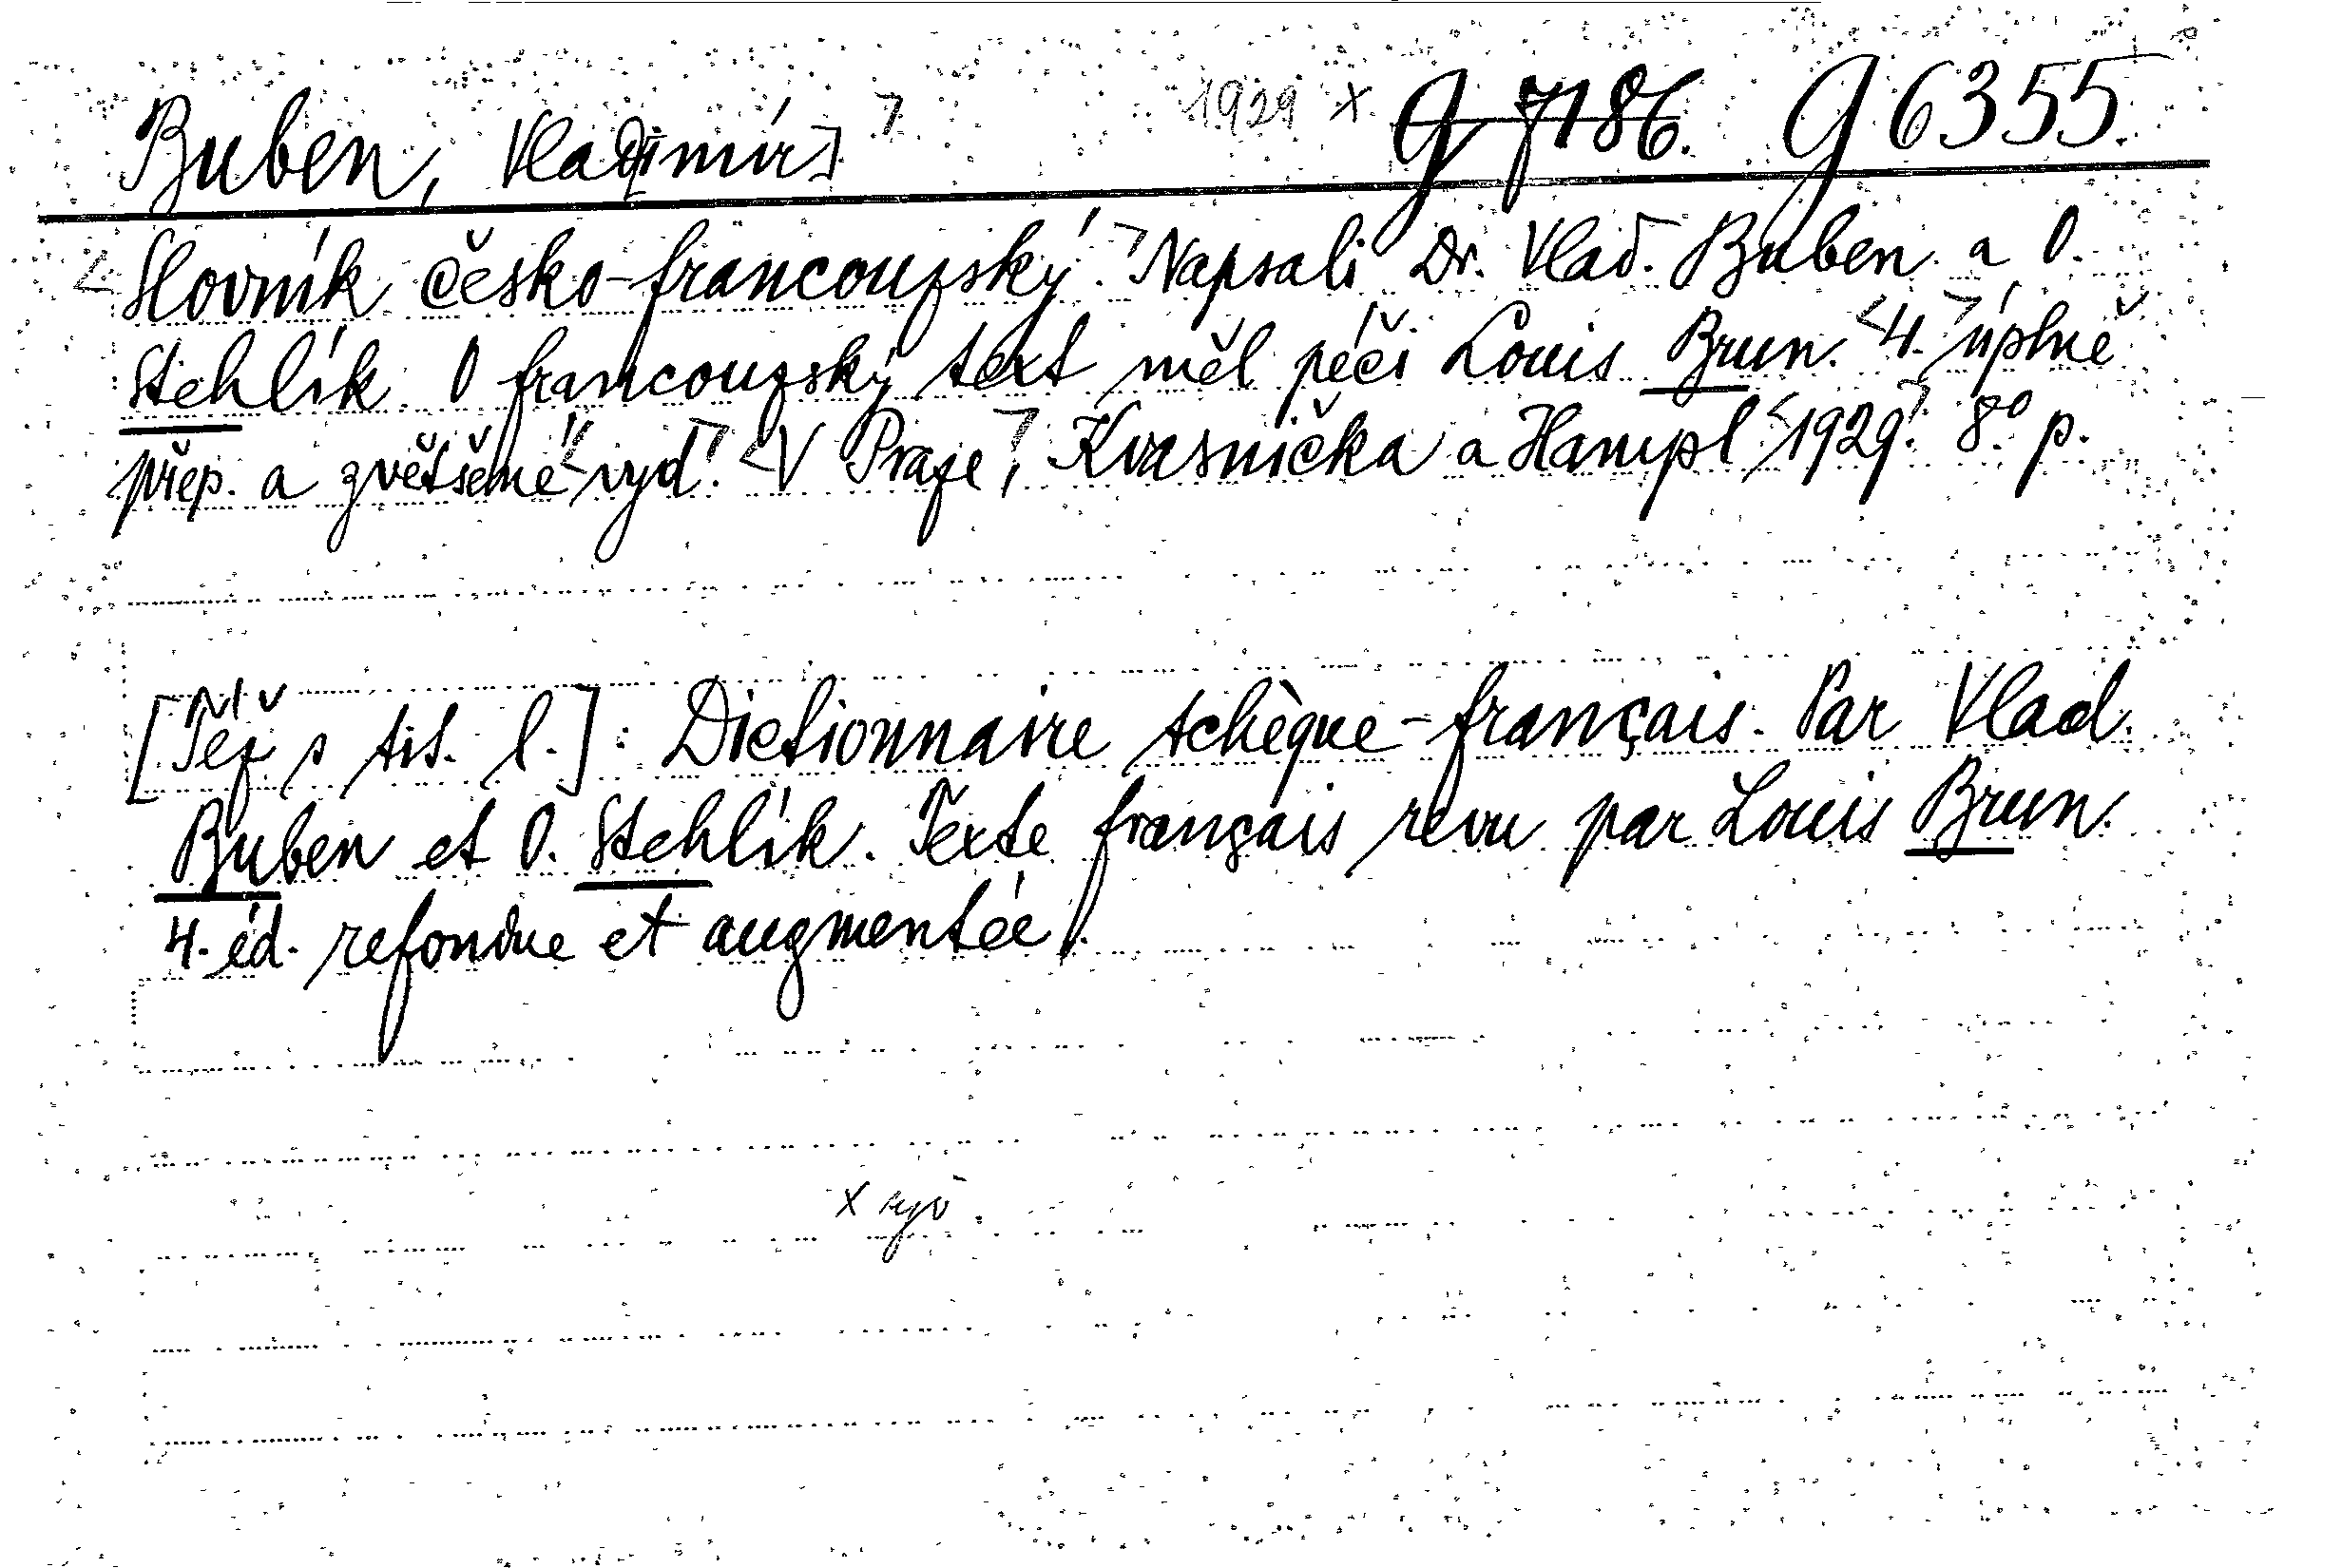 Buben, Vlad[imír] 1929 x g 7186. g 6355.
Slovník česko-francouzský. Napsali Dr. Vlad. Buben a O.
Stehlík. O francouzský text měl péči Louis Brun. 4. úplně
přep. a zvětšené vyd. V Praze, Kvasnička a Hampl 1929. 8° p.
[Též s tit. l.]: Dictionnaire tchèque-français. Par Vlad.
Buben et O. Stehlík. Texte français revu par Louis Brun.
4. éd. refondue et augmentée.
x